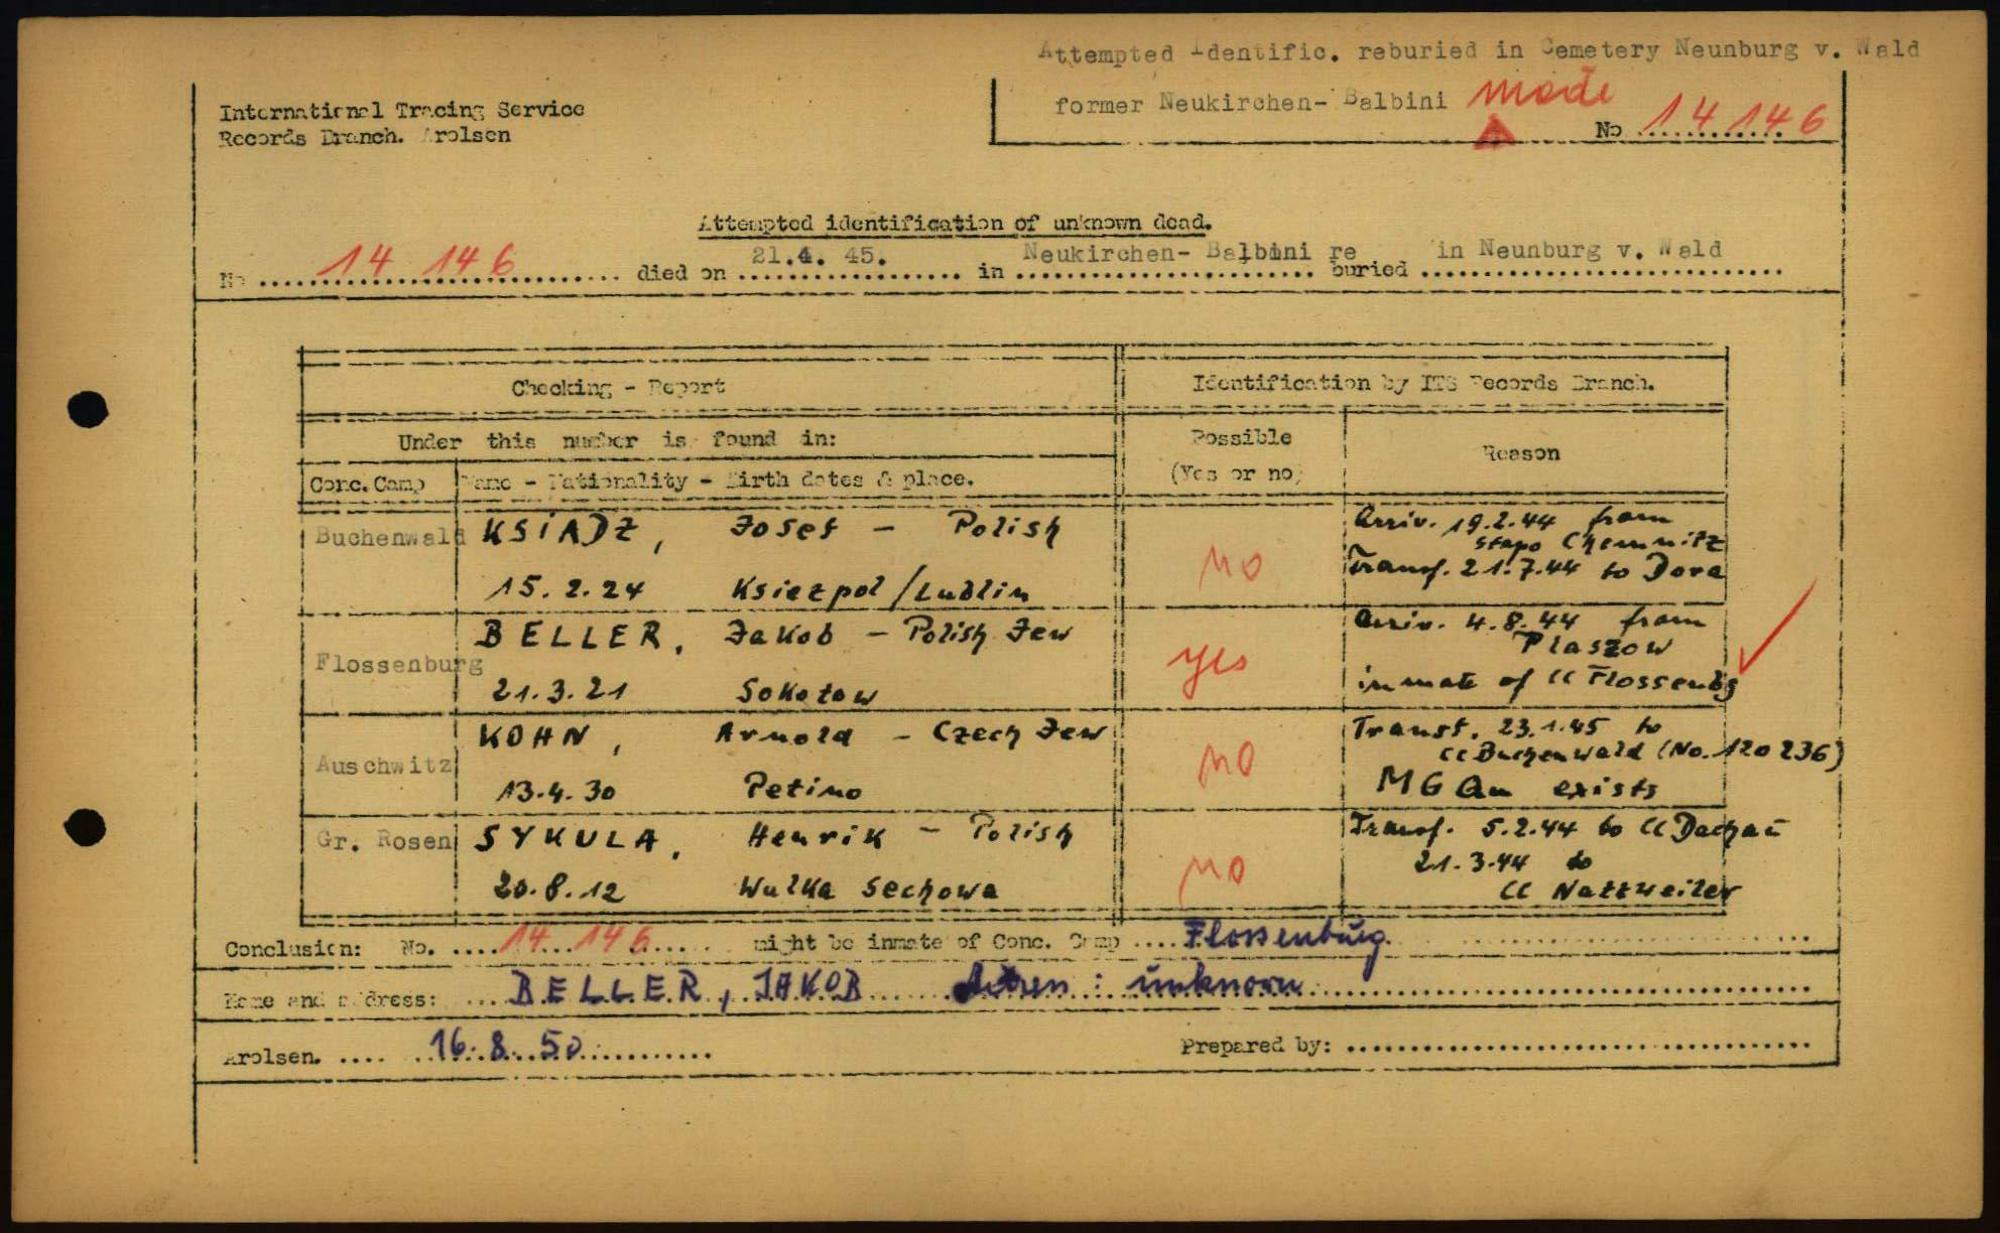 Attempted Identific. reburied in Cemetery Neunburg v. Wald
former Neukirchen- Balbini
No 14 146
International Tracing Service
Records Branch. Arolsen
Attempted identification of unknown dead.
No 14 146 died on 21.4. 45. in Neukirchen- Balbini re buried in Neunburg v. Wald
Checking - Report
Identification by ITS Records Branch.
Under this number is found in:
Possible
(Yes or no)
Reason
Conc. Camp
Name - Nationality - Birth dates & place.
Buchenwald
KSIADZ, Josef - Polish
15. 2. 24 Ksiezpol/Lublin
no
Arriv. 19.2.44 from
Stapo Chemnitz
Transf. 21.7.44 to Dora
Flossenburg
BELLER, Jakob - Polish Jew
21. 3. 21 Sokotow
yes
Arriv. 4.8.44 from
Plaszow
inmate of CC Flossenbg
Auschwitz
KOHN, Arnold - Czech Jew
13.4.30 Petino
no
Transf. 23.1.45 to
CC Buchenwald (No. 120 236)
exists
Gr. Rosen
SYKULA, Henrik - Polish
20.8.12 Wulka Sechowa
no
Transf. 5.2.44 to CC Dachau
21.3.44 to
CC Natzweiler
Conclusion: No. 14 146 might be inmate of Conc. Camp Flossenbürg
Name and address: BELLER, JAKOB : unknown
Arolsen. 16. 8. 50
Prepared by: